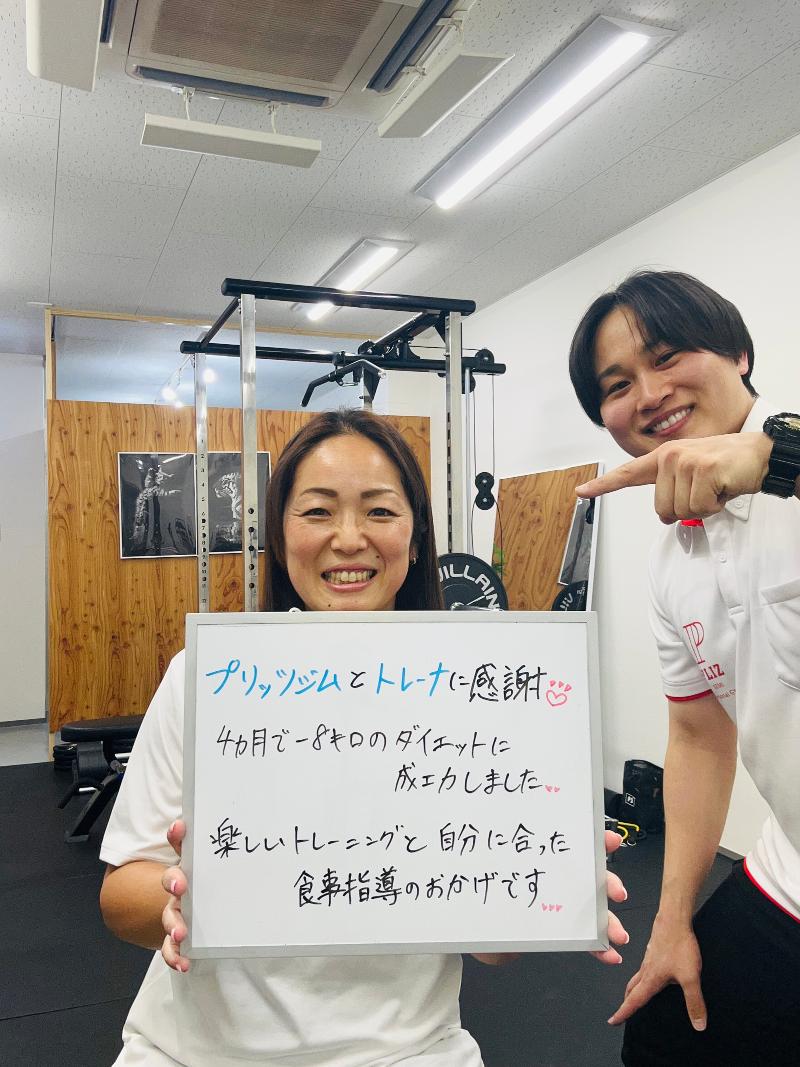 プリッツジムとトレーナに感謝
4ヵ月で-8キロのダイエットに
成功しました
楽しいトレーニングと自分に合った
食事指導のおかげです
VILLAIN